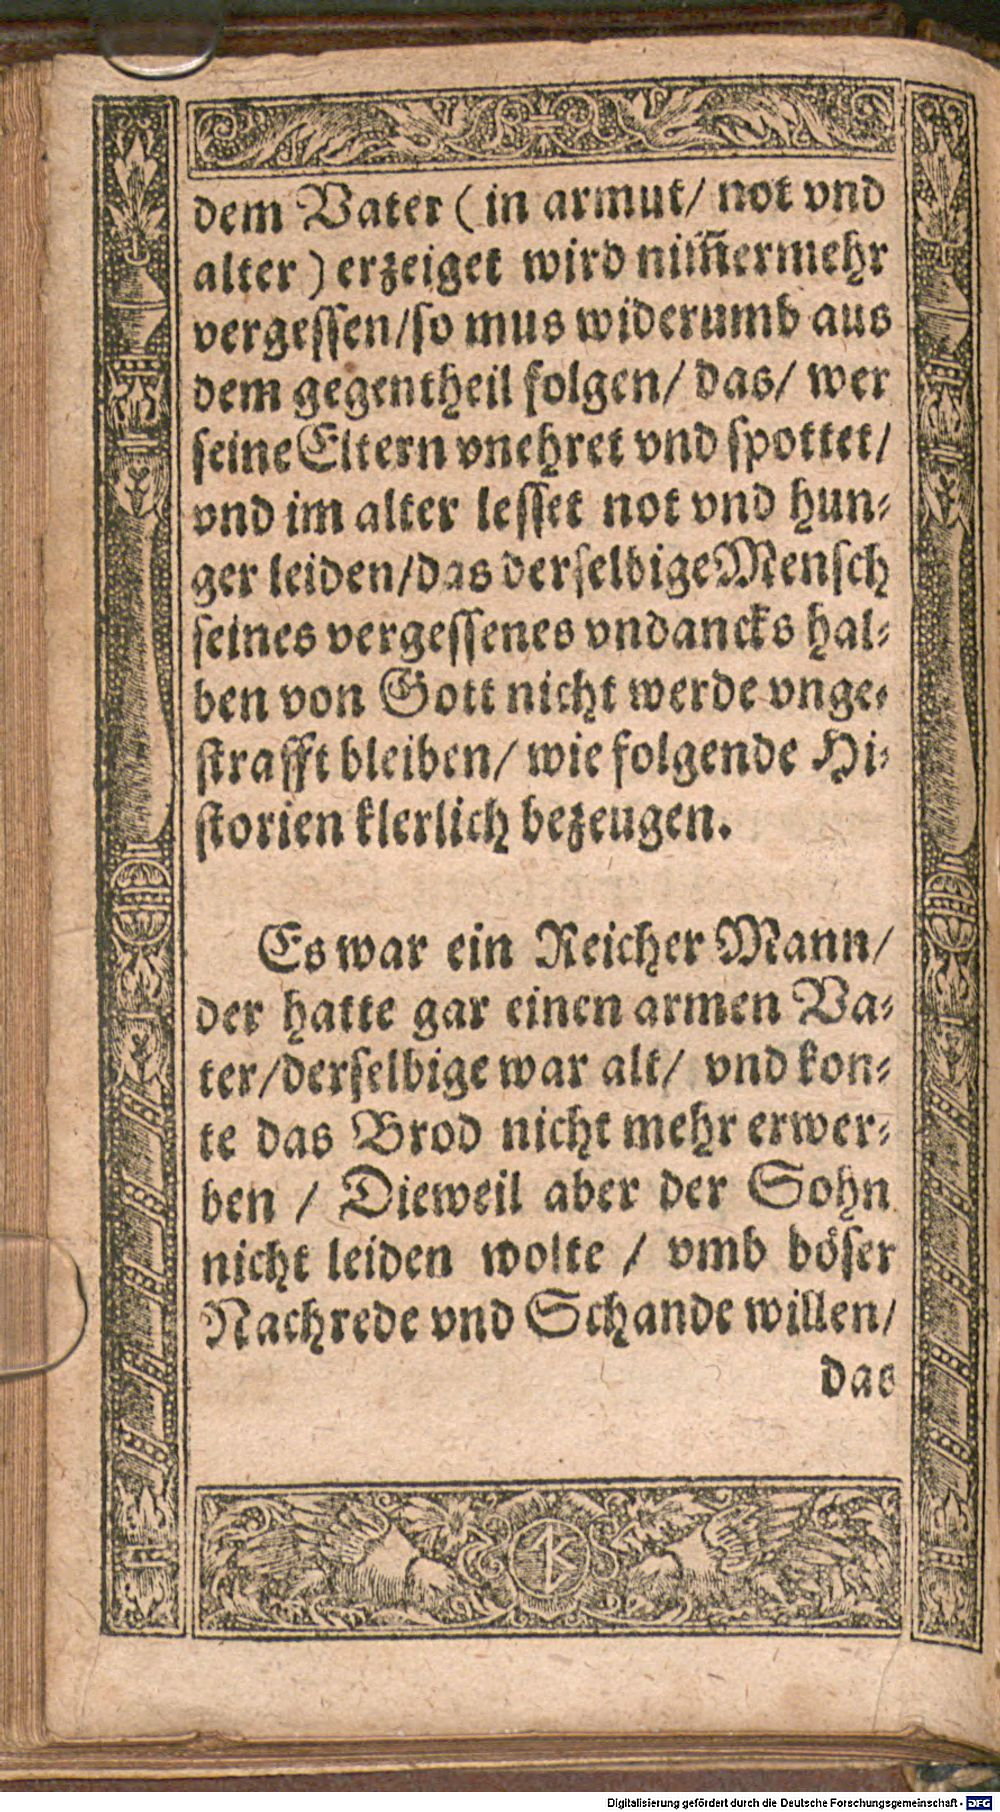 dem Vater (in armut/ not vnd
alter) erzeiget wird nim̄ermehr
vergessen/so mus widerumb aus
dem gegentheil folgen/ das/ wer
seine Eltern vnehret vnd spottet/
vnd im alter lesset not vnd hun⸗
ger leiden/das derselbige Mensch
seines vergessenes vndancks hal⸗
ben von Gott nicht werde vnge⸗
strafft bleiben/ wie folgende Hi⸗
storien klerlich bezeugen.
Es war ein Reicher Mann/
der hatte gar einen armen Va⸗
ter/derselbige war alt/ vnd kon⸗
te das Brod nicht mehr erwer⸗
ben / Dieweil aber der Sohn
nicht leiden wolte / vmb böser
Nachrede vnd Schande willen/
das
Digitalisierung gefördert durch die Deutsche Forschungsgemeinschaft - DFG